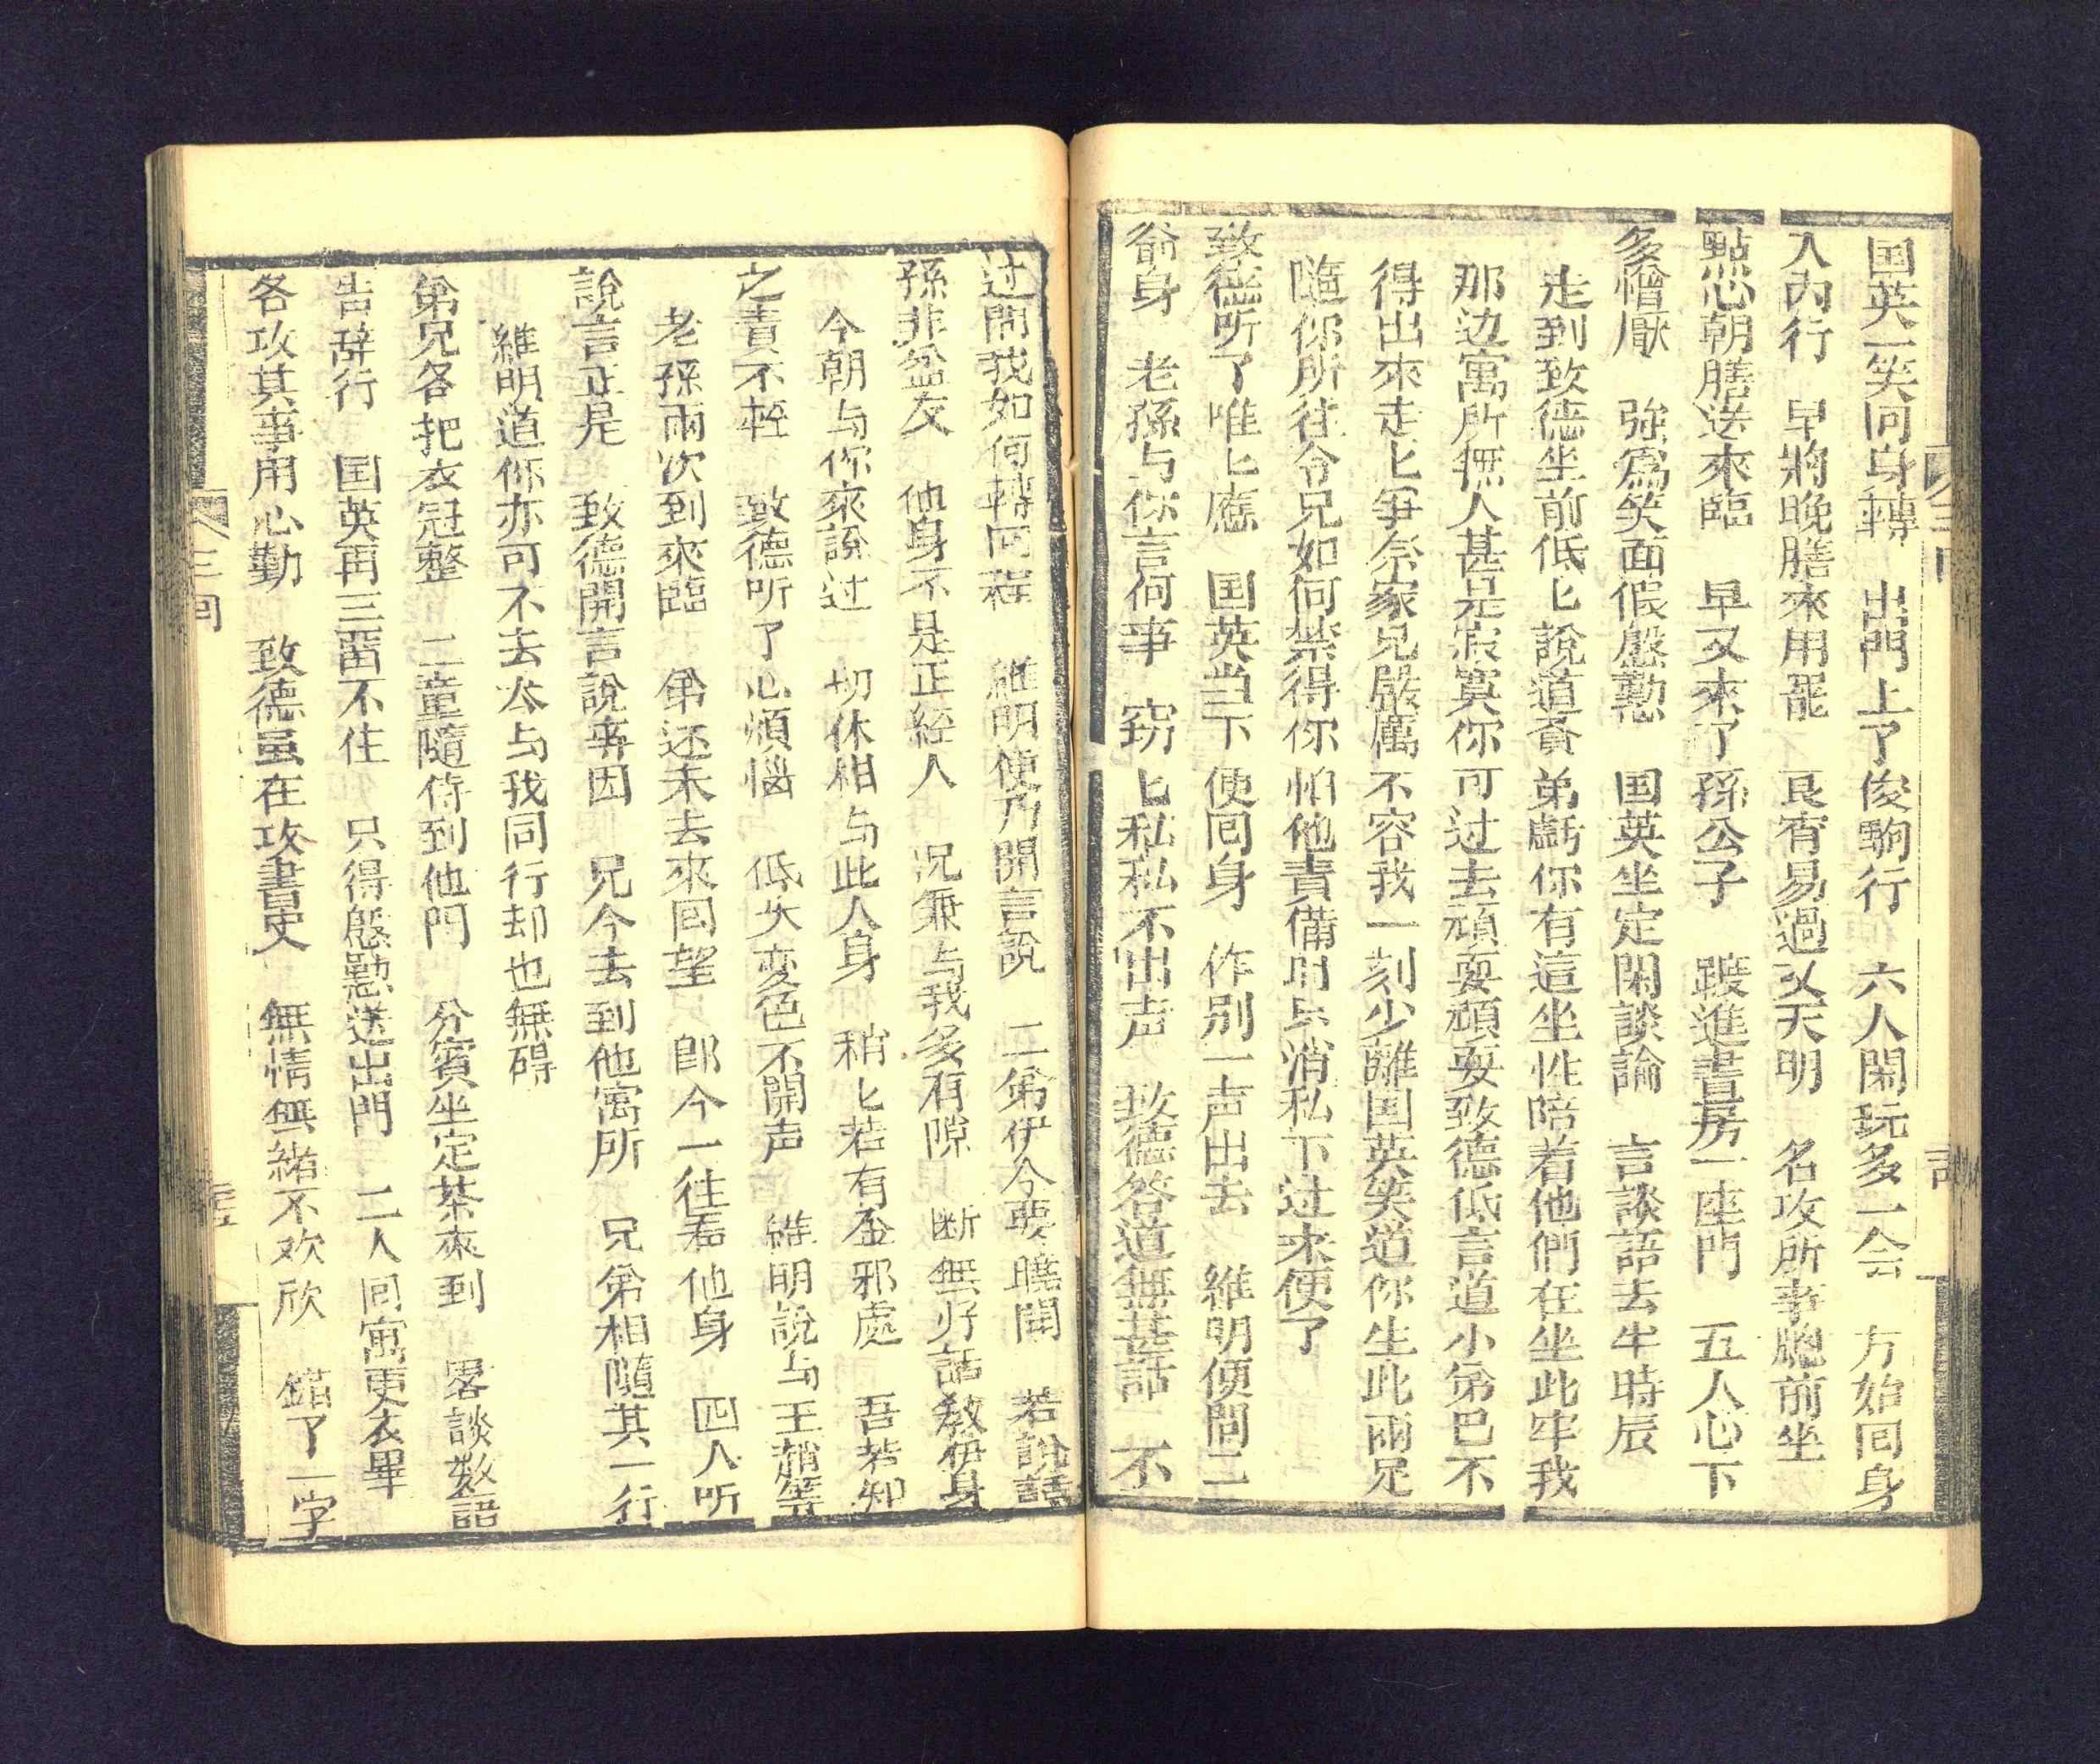 国英一笑囘身轉　出門上了俊駒行　六人閑玩多一会　方始囘身
入內行　早將晚膳來用罷　良宵易過又天明　名攻所事牕前坐
點心朝膳送來臨　早又來了孫公子　踱進書房一座門　五人心下
多憎厭　強爲笑面假慇懃　国英坐定閑談論　言談語去半時辰
走到致德坐前低匕說道賢弟虧你有這坐性陪着他們在坐此牢我
那边寓所無人甚是寂寞你可过去頑耍頑耍致德低言道小弟巴不
得出來走匕争奈家兄嚴厲不容我一刻少離国英笑道你生此兩足
隨你所往令兄如何禁得你怕他責備明日消私下过来便了
致德听了唯匕應　国英当下便囘身　作别一声出去　維明便問二
爺身　老孫与你言何事　窃匕私私不出声　致德答道無甚話　不
过問我如何轉囘程　維明便乃開言說　二弟伊今要聽聞　若說話
孫非益友　他身不是正經人　况兼与我多有隙　断無好話教伊身
今朝与你來說过　切休相与此人身　稍匕若有奸邪處　吾若知
之責不輕　致德听了心煩惱　低头変色不開声　維明說与王趙等
老孫兩次到來臨　弟还未去來囘望　卽今一往看他身　四人听
說言正是　致德開言說事因　兄今去到他寓所　兄弟相隨其一行
維明道你亦可不去衣与我同行却也無碍
弟兄各把衣冠整　二童隨侍到他門　分賓坐定茶來到　畧談数語
告辞行　国英再三畱不住　只得慇懃送出門　二人囘寓更衣畢
各攻其事用心勤　致德虽在攻書史　無情無緒不欢欣　錯了一字
三囘